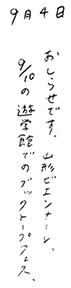 9月4日
おしらせです。山形ビエンナーレ、
9/10の遊学館でのブックトープフェス、